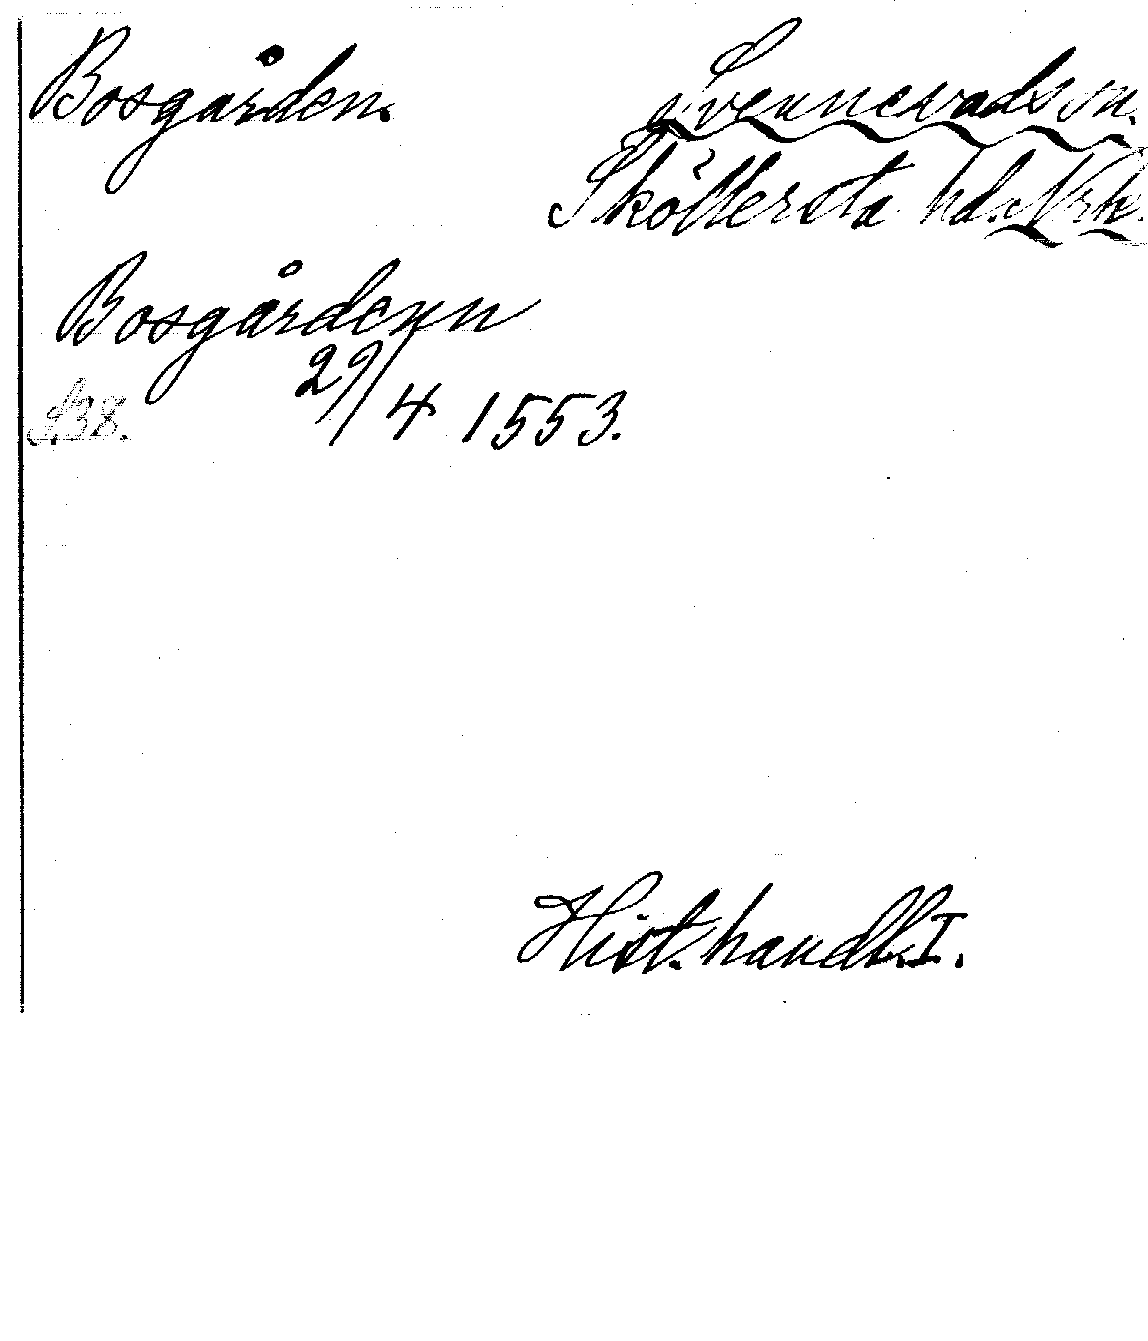 Bosgården. Svennevads sn.
Sköllersta hd. Nrk.
Bosgårdenn
29/4 1553.
S.38.
Hist. handl. I.